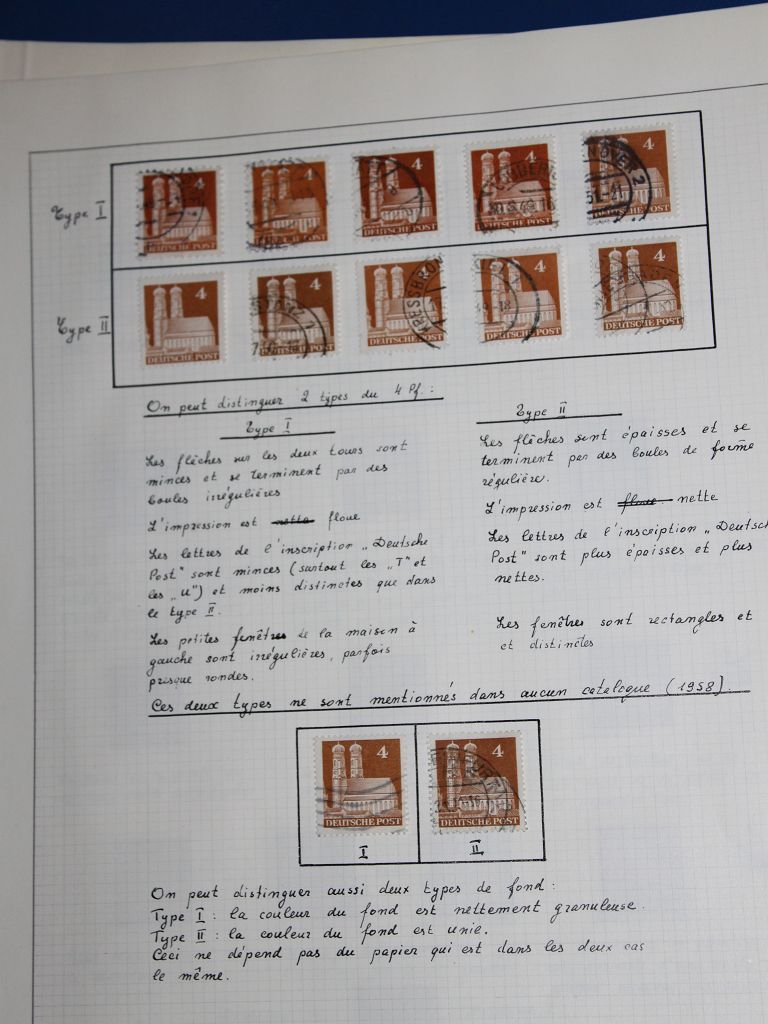 Type I
4 4 4 4 4
DEUTSCHE POST DEUTSCHE POST DEUTSCHE POST DEUTSCHE POST DEUTSCHE POST
Type II
4 4 4 4 4
DEUTSCHE POST DEUTSCHE POST DEUTSCHE POST DEUTSCHE POST DEUTSCHE POST
On peut distinguer 2 types du 4 Pf. :
Type I
Les flèches sur les deux tours sont
minces et se terminent par des
boules irrégulières
L'impression est netta floue
Les lettres de l'inscription „Deutsche
Post" sont minces (surtout les „T" et
les „U") et moins distinctes que dans
le type II.
Les petites fenêtres de la maison à
gauche sont irrégulières, parfois
presque rondes.
Type II
Les flèches sont épaisses et se
terminent par des boules de forme
régulière.
L'impression est floue nette
Les lettres de l'inscription „Deutsch
Post" sont plus épaisses et plus
nettes.
Les fenêtres sont rectangles et
et distinctes
Ces deux types ne sont mentionnés dans aucun catalogue (1958).
4 4
DEUTSCHE POST DEUTSCHE POST
I II
On peut distinguer aussi deux types de fond :
Type I : la couleur du fond est nettement granuleuse.
Type II : la couleur du fond est unie.
Ceci ne dépend pas du papier qui est dans les deux cas
le même.